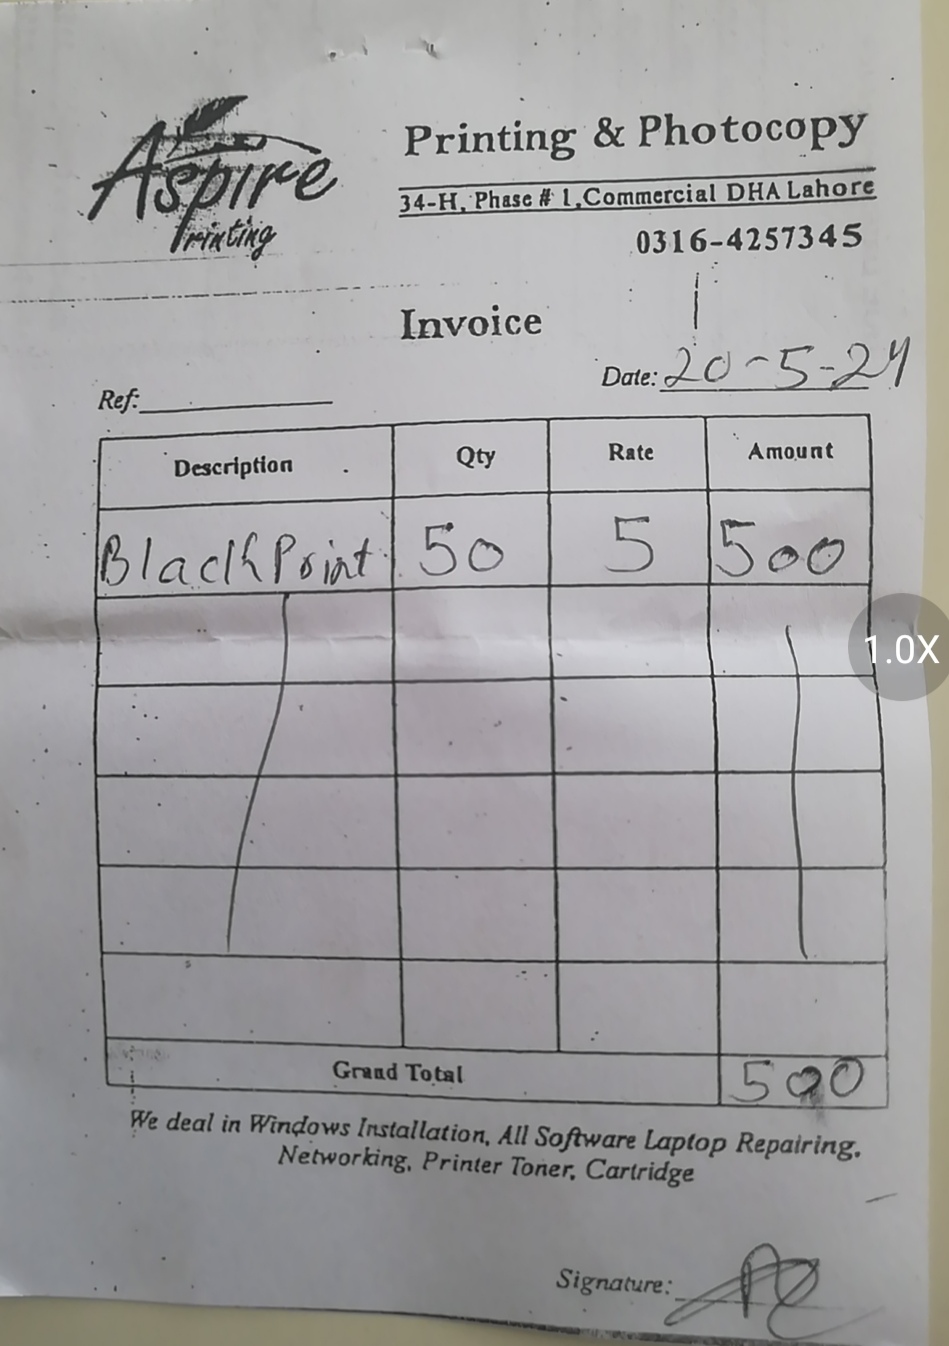 Aspire
Printing
Printing & Photocopy
34-H, Phase # 1,Commercial DHA Lahore
0316-4257345
Invoice
Date: 20-5-24
Ref:
Description Qty Rate Amount
Black Print 50 5 500
1.0X
Grand Total 500
We deal in Windows Installation, All Software Laptop Repairing,
Networking, Printer Toner, Cartridge
Signature: